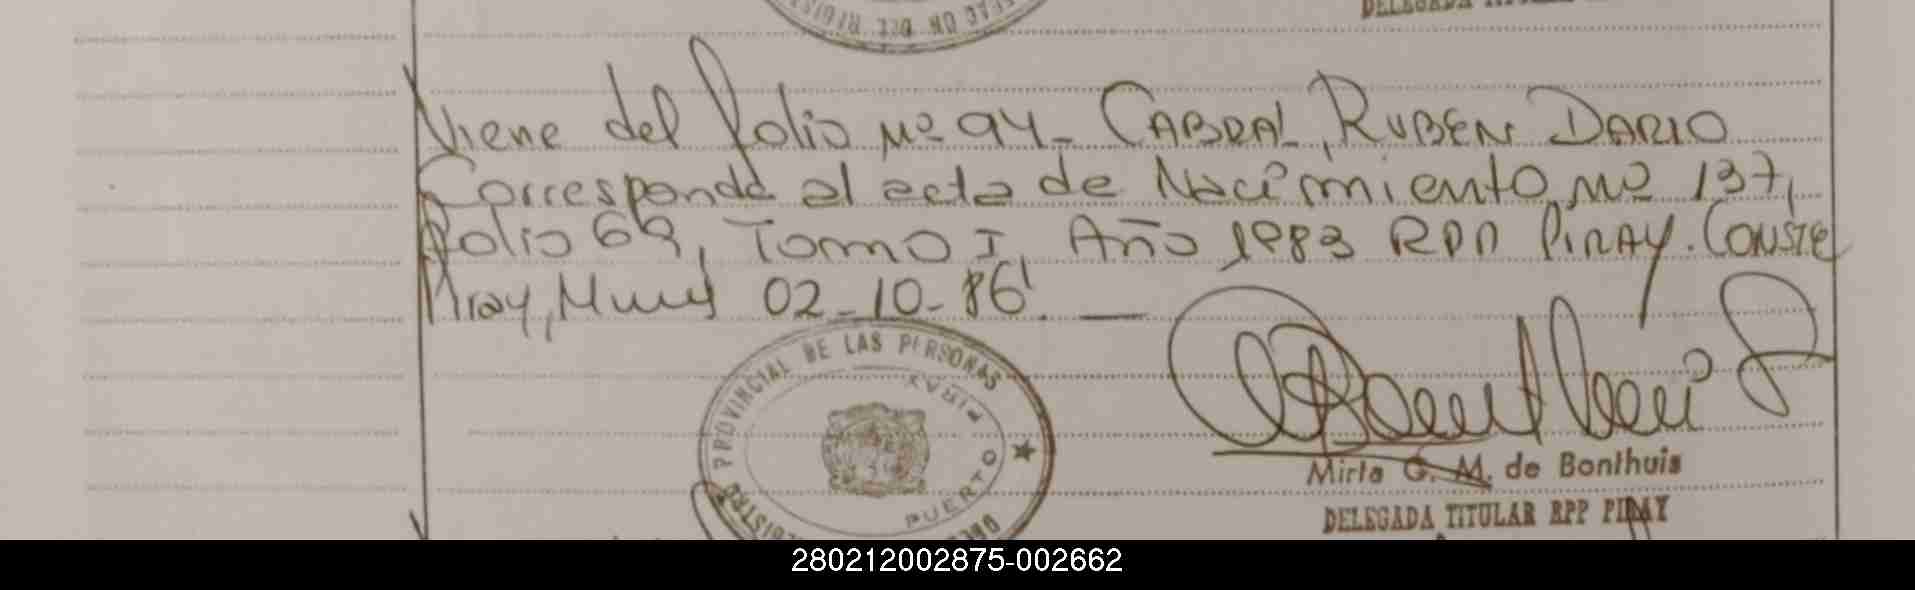 DELEGADA TITULAR
Viene del folio Nº 94_ CABRAL, RUBEN DARIO
Corresponde al acta de Nacimiento, nº 137,
folio 69, Tomo I, Año 1983 RPP PIRAY. CONSTE
Piray, Mnes 02-10-86'. —
PROVINCIAL DE LAS PERSONAS
PUERTO PIRAY
Mirta G. M. de Bonthuis
DELEGADA TITULAR RPP PIRAY
280212002875-002662